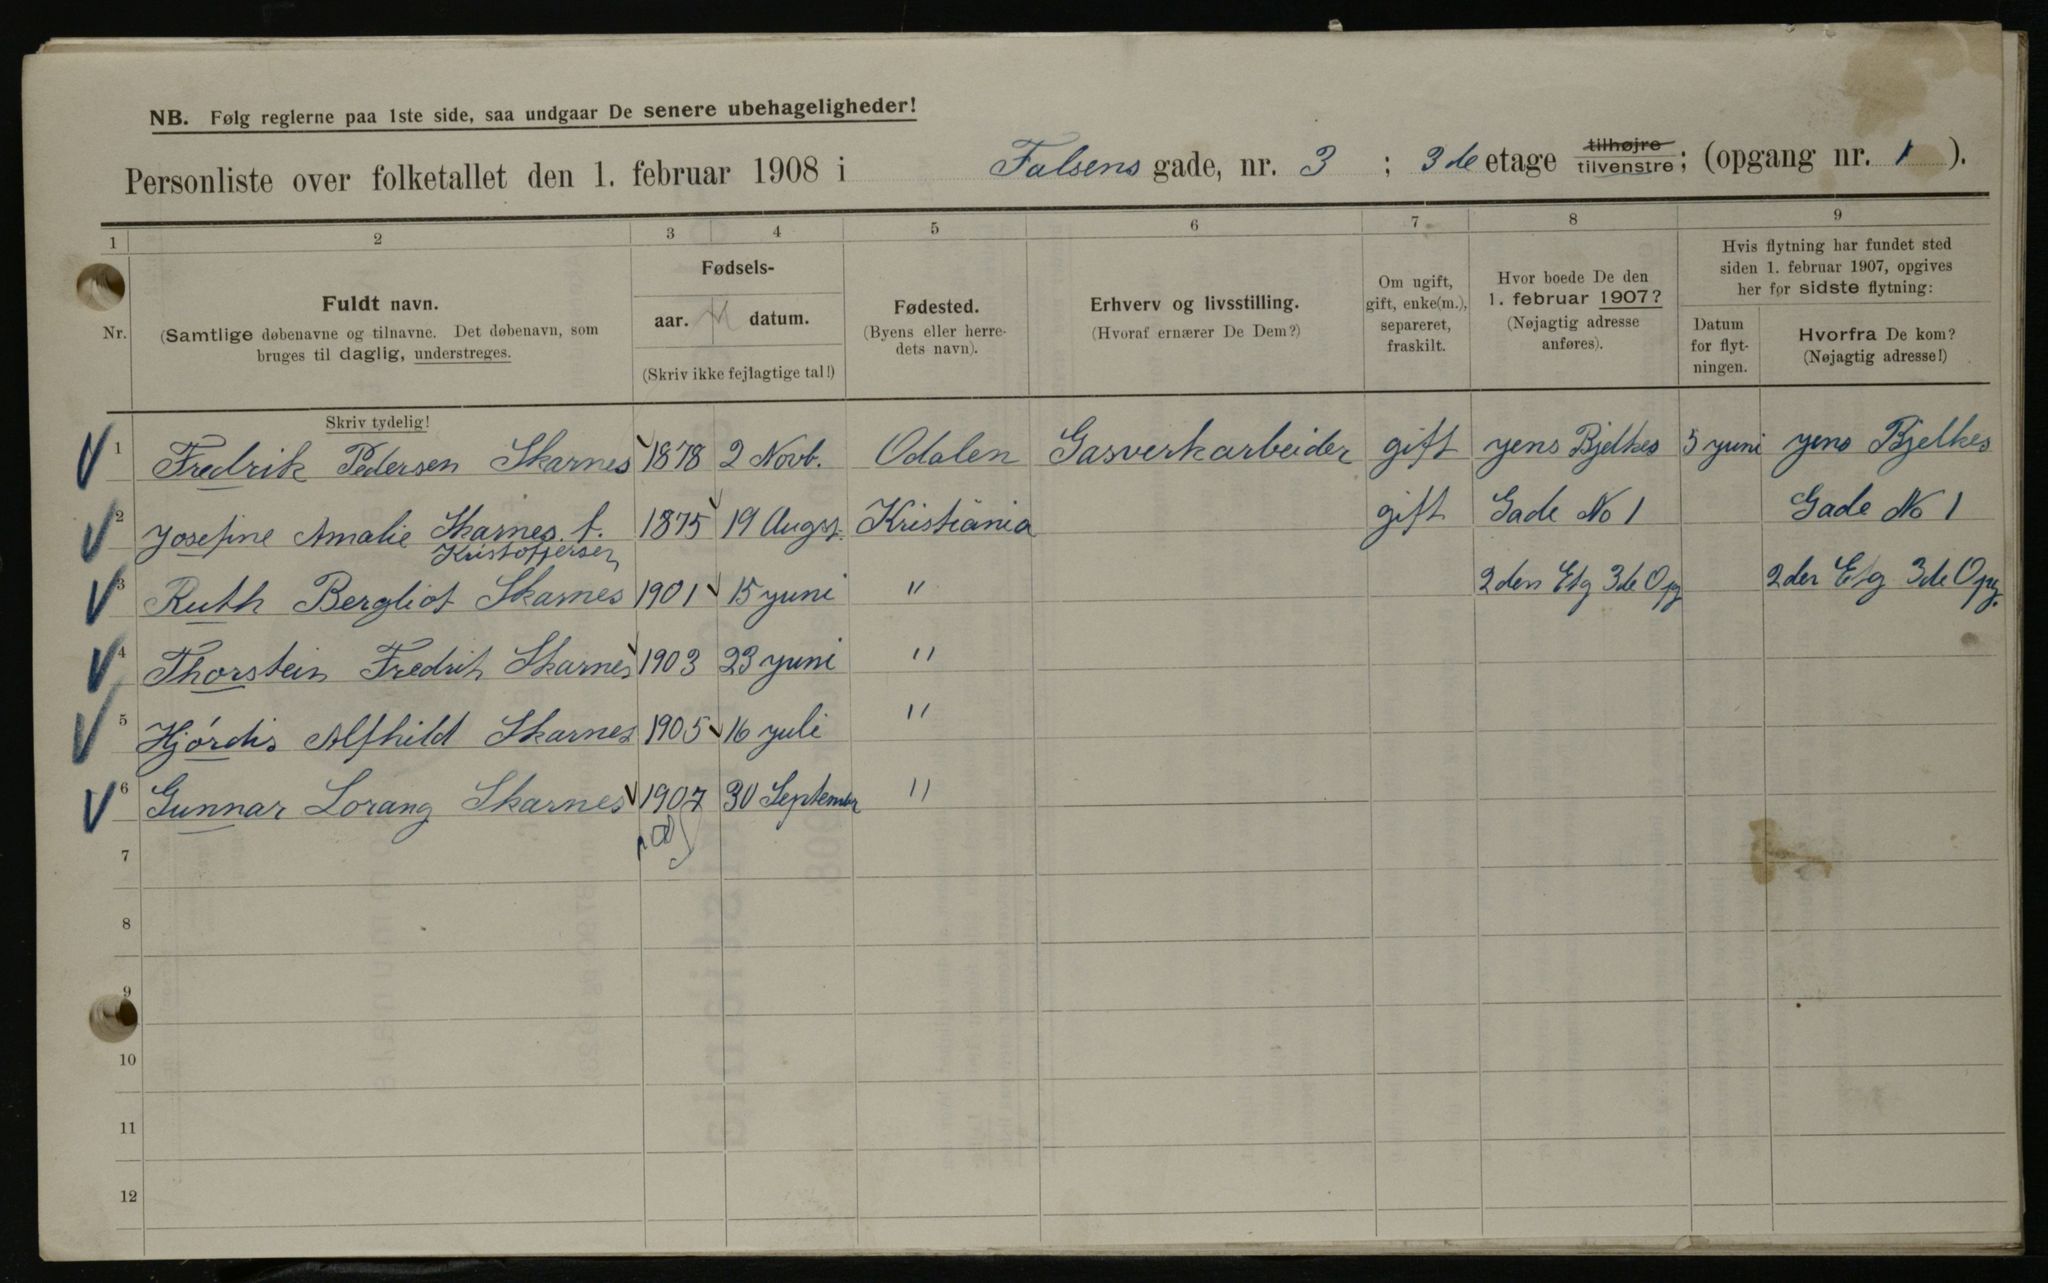 NB. Følg reglerne paa 1ste side, saa undgaar De senere ubehageligheder!
Personliste over folketallet den 1. februar 1908 i Falsens gade, nr. 3 ; 3de etage tilhøjre tilvenstre; (opgang nr. 1 ).
1 2 3 4 5 6 7 8 9
Nr.
Fuldt navn.
(Samtlige døbenavne og tilnavne. Det døbenavn, som
bruges til daglig, understreges.
Fødsels-
aar. datum.
(Skriv ikke fejlagtige tal!)
Fødested.
(Byens eller herre-
dets navn).
Erhverv og livsstilling.
(Hvoraf ernærer De Dem?)
Om ugift,
gift, enke(m.),
separeret,
fraskilt.
Hvor boede De den
1. februar 1907?
(Nøjagtig adresse
anføres).
Hvis flytning har fundet sted
siden 1. februar 1907, opgives
her for sidste flytning:
Datum
for flyt-
ningen.
Hvorfra De kom?
(Nøjagtig adresse!)
Skriv tydelig!
1 Fredrik Pedersen Skarnes 1878 2 Novb. Odalen Gasverkarbeider gift yens Bjelkes 5 yuni yens Bjelkes
2 Josefine Amalie Skarnes f. 1875 19 Augst. Kristiania gift Gade No 1 Gade No 1
Kristoffersen
3 Ruth Bergliot Skarnes 1901 15 yuni " 2den Etg 3de Opg 2der Etg 3de Opg.
4 Thorstein Fredrik Skarnes 1903 23 yuni "
5 Hjórdis Alfhild Skarnes 1905 16 yuli "
6 Gunnar Lorang Skarnes 1907 30 September "
7
8
9
10
11
12